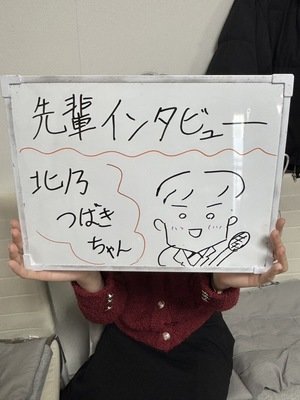 先輩インタビュー
北乃
つばき
ちゃん